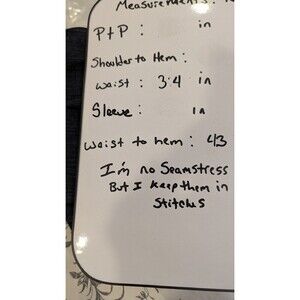 Measurements:
PtP : in
Shoulder to Hem :
waist : 34 in
Sleeve : in
waist to hem : 43
I'm no Seamstress
But I keep them in
Stitches